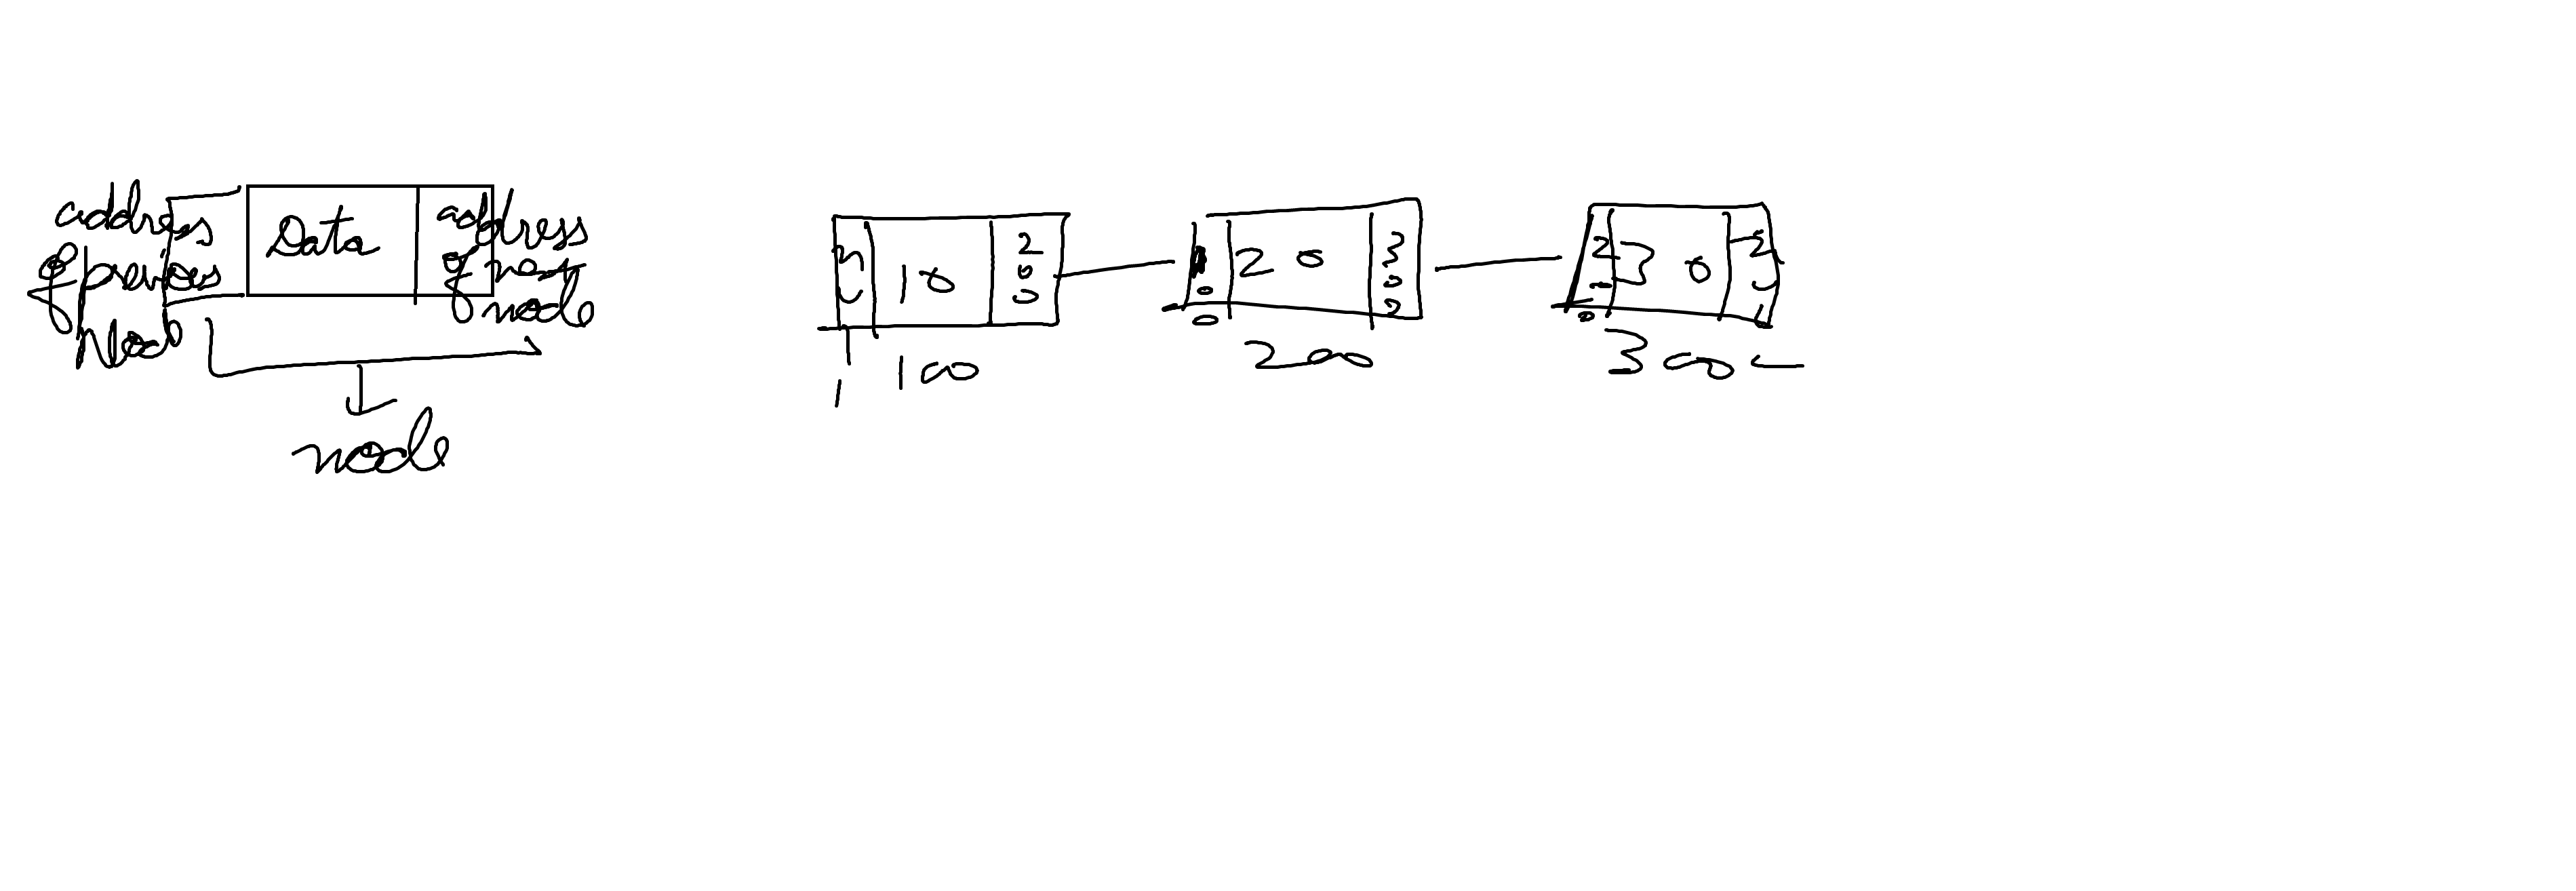 address
of previous
Node
Data
address
of next
node
node
10
200
100
100
20
300
200
200
30
300